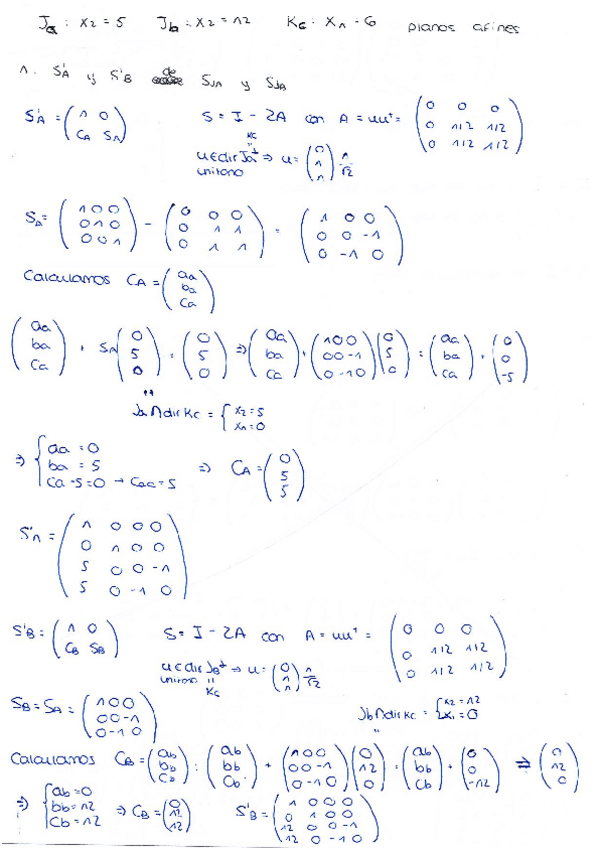 Ja : x2 = 5 Jb : x2 = 12 Kc : x1 = 6 planos afines
1. S'A y S'B de SJA y SJB
S'A = (1 0; CA SA) S = I - 2A con A = uu^t = (0 0 0; 0 1/2 1/2; 0 1/2 1/2)
Kc
"
u ∈ dir Ja^⊥ ⇒ u = (0; 1; 1) 1/√2
unitario
SA = (1 0 0; 0 1 0; 0 0 1) - (0 0 0; 0 1 1; 0 1 1) = (1 0 0; 0 0 -1; 0 -1 0)
Calculamos CA = (aa; ba; ca)
(aa; ba; ca) + SA (0; 5; 0) = (0; 5; 0) ⇒ (aa; ba; ca) + (1 0 0; 0 0 -1; 0 -1 0) (0; 5; 0) = (aa; ba; ca) + (0; 0; -5)
"
Ja ∩ dir Kc = { x2 = 5; x1 = 0
⇒ { aa = 0; ba = 5; ca - 5 = 0 → ca = 5 ⇒ CA = (0; 5; 5)
S'A = (1 0 0 0; 0 1 0 0; 5 0 0 -1; 5 0 -1 0)
S'B = (1 0; CB SB) S = I - 2A con A = uu^t = (0 0 0; 0 1/2 1/2; 0 1/2 1/2)
u ∈ dir JB^⊥ ⇒ u = (0; 1; 1) 1/√2
unitario "
Kc
SB = SA = (1 0 0; 0 0 -1; 0 -1 0) Jb ∩ dir Kc = { x2 = 12; x1 = 0
"
Calculamos CB = (ab; bb; cb) : (ab; bb; cb) + (1 0 0; 0 0 -1; 0 -1 0) (0; 12; 0) = (ab; bb; cb) + (0; 0; -12) = (0; 12; 0)
⇒ { ab = 0; bb = 12; cb = 12 ⇒ CB = (0; 12; 12) S'B = (1 0 0 0; 0 1 0 0; 12 0 0 -1; 12 0 -1 0)